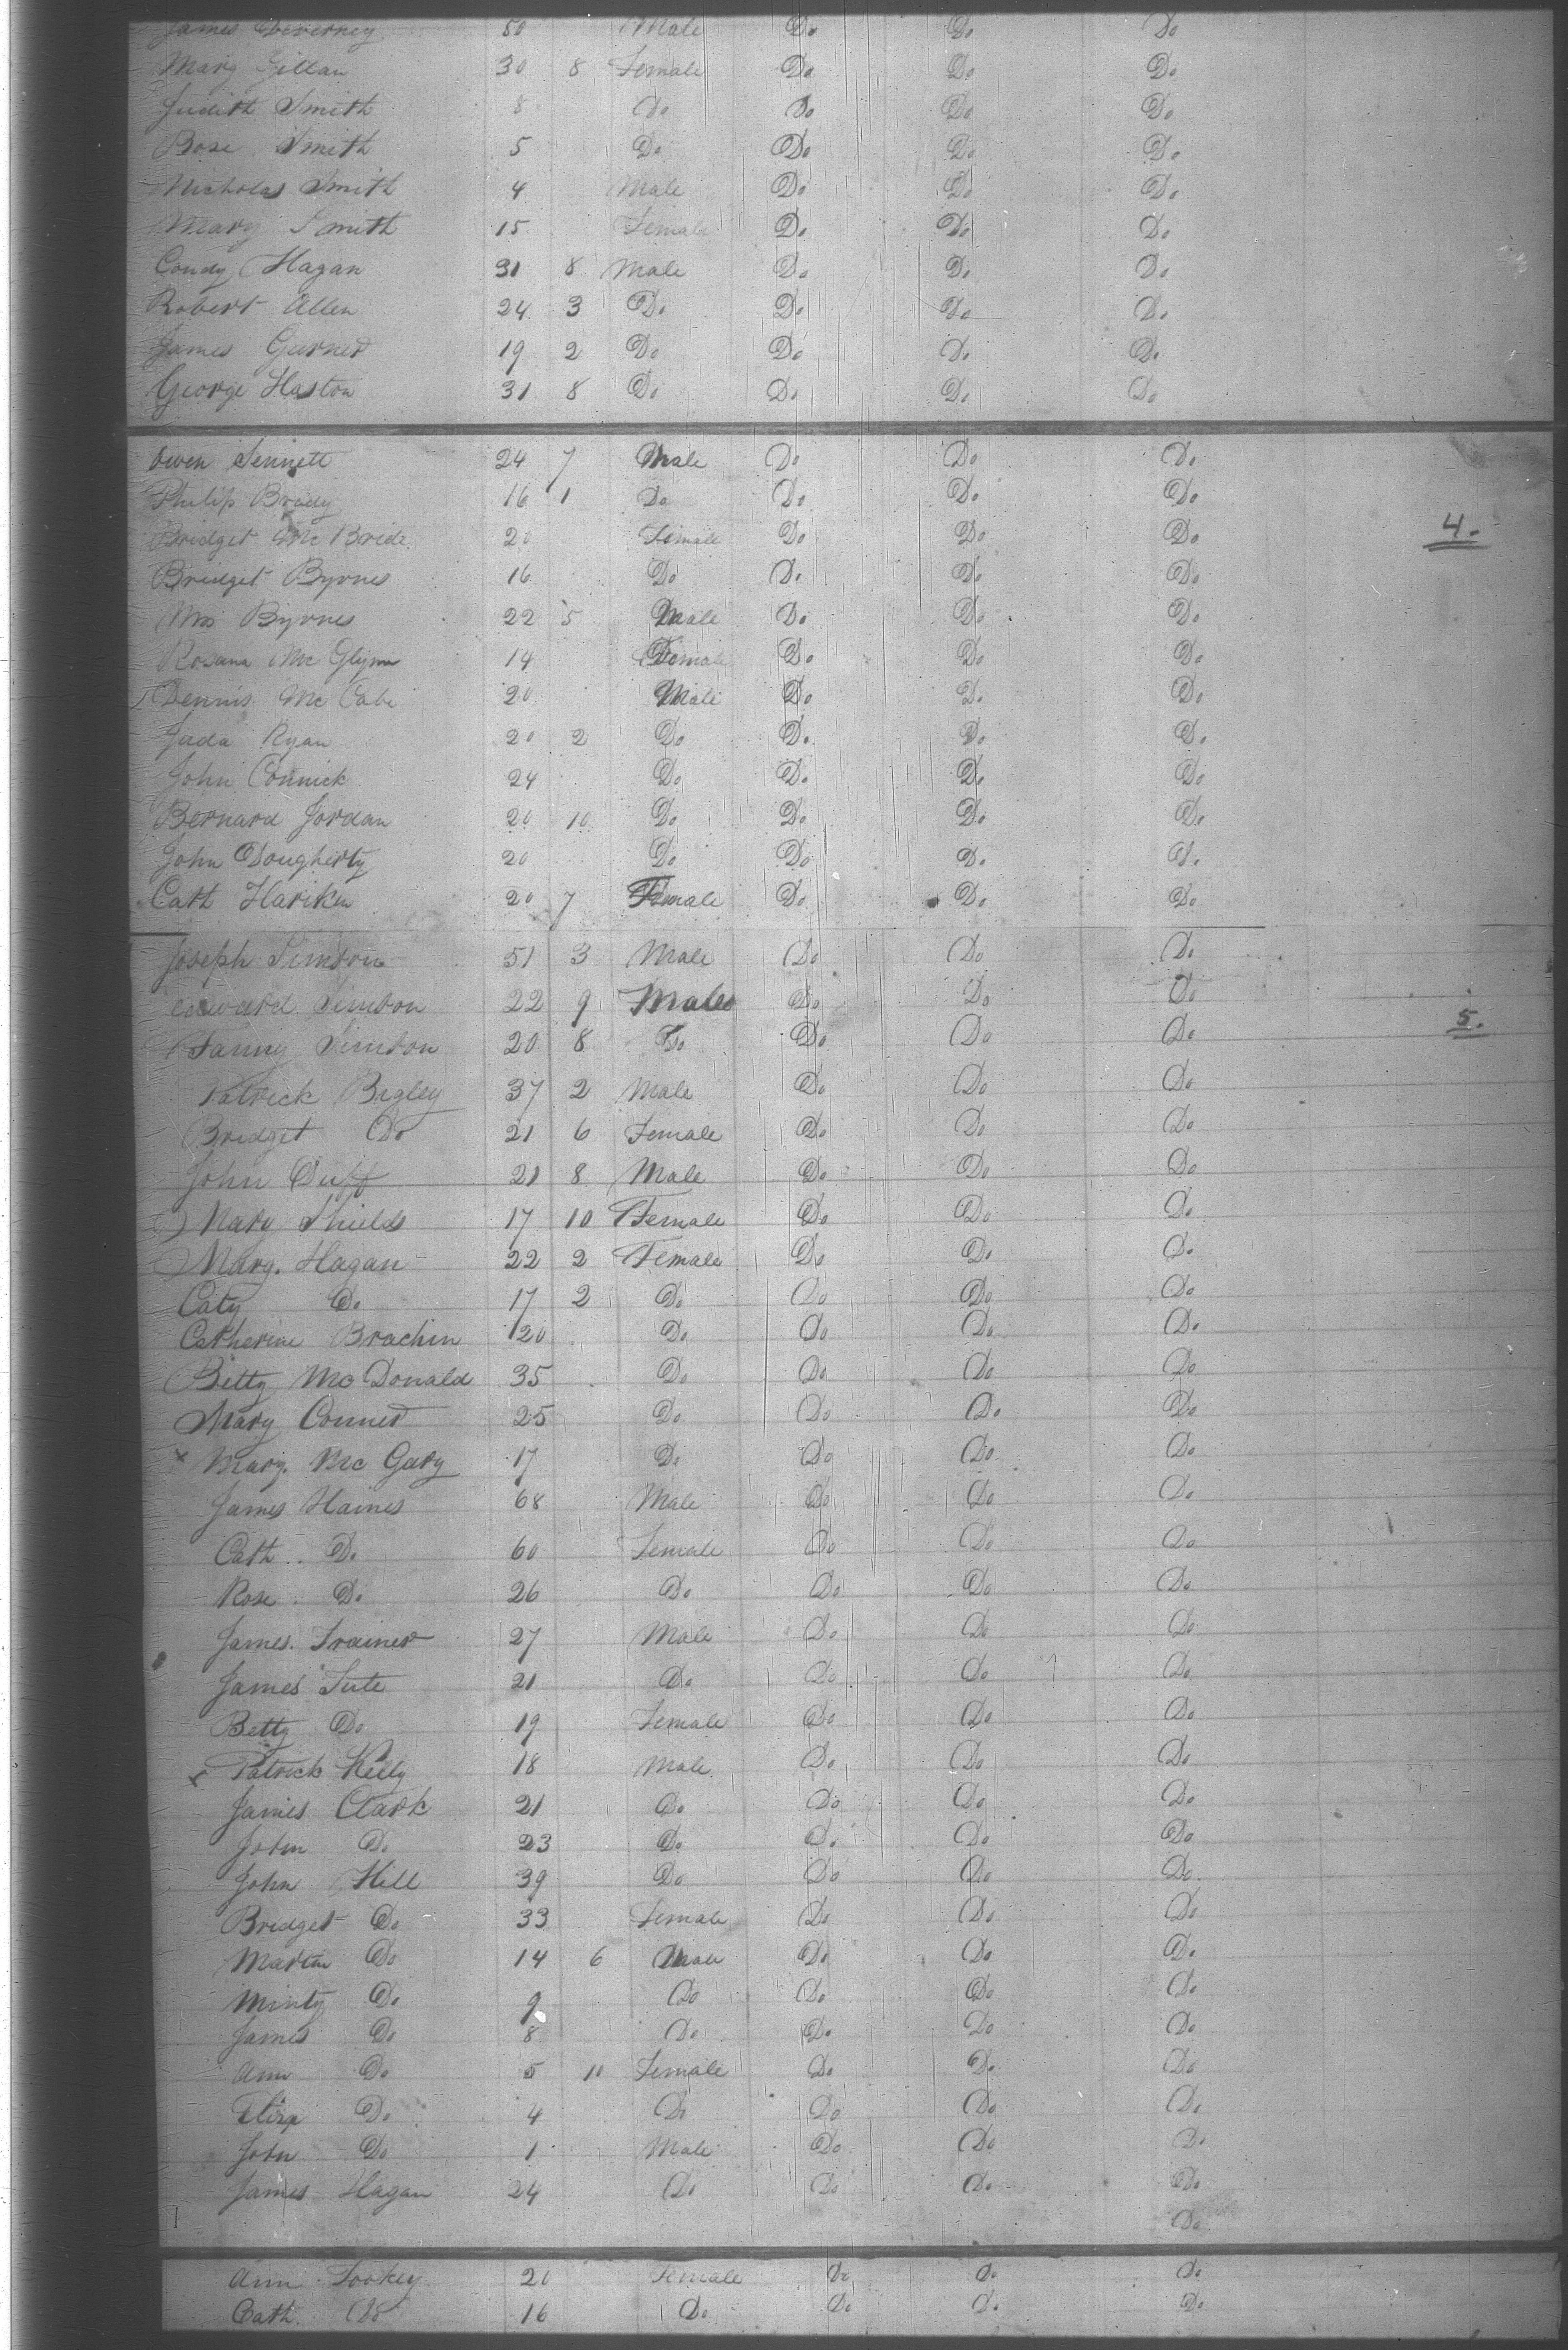 James Deverney 50 Male Do Do Do
Marg Gillan 30 8 Female Do Do Do
Judith Smith 8 Do Do Do Do
Rose Smith 5 Do Do Do Do
Nicholas Smith 4 Male Do Do Do
Mary Smith 15 Female Do Do Do
Condy Hagan 31 8 Male Do Do Do
Robert Allen 24 3 Do Do Do Do
James Gurner 19 2 Do Do Do Do
George Haston 31 8 Do Do Do Do
Owen Sennett 24 7 Male Do Do Do
Philip Brady 16 1 Do Do Do Do
Bridget McBride 20 Female Do Do Do
4.
Bridget Byrnes 16 Do Do Do Do
Byrnes 22 5 Male Do Do Do
Rosana McGlynn 14 Female Do Do Do
Dennis McCabe 20 Male Do Do Do
Juda Ryan 20 2 Do Do Do Do
John Connick 24 Do Do Do Do
Bernard Jordan 20 10 Do Do Do Do
John Dougherty 20 Do Do Do Do
Cath Harikin 20 7 Female Do Do Do
Joseph Simson 51 3 Male Do Do Do
Edward Simson 22 9 Male Do Do Do
5.
Fanny Simson 20 8 Do Do Do Do
Patrick Bigley 37 2 Male Do Do Do
Bridget Do 21 6 Female Do Do Do
John Duff 21 8 Male Do Do Do
Mary Shields 17 10 Female Do Do Do
Marg. Hagan 22 2 Female Do Do Do
Caty Do 17 2 Do Do Do Do
Catherine Brachin 20 Do Do Do Do
Betty McDonald 35 Do Do Do Do
Mary Conner 25 Do Do Do Do
x Marg. McGary 17 Do Do Do Do
James Haines 68 Male Do Do Do
Cath. Do 60 Female Do Do Do
Rose Do 26 Do Do Do Do
James Trainer 27 Male Do Do Do
James Tute 21 Do Do Do Do
Betty Do 19 Female Do Do Do
x Patrick Kelly 18 Male Do Do Do
James Clark 21 Do Do Do Do
John Do 23 Do Do Do Do
John Hill 39 Do Do Do Do
Bridget Do 33 Female Do Do Do
Martin Do 14 6 Male Do Do Do
Minty Do 9 Do Do Do Do
James Do 8 Do Do Do Do
Ann Do 5 10 Female Do Do Do
Eliza Do 4 Do Do Do Do
John Do 1 Male Do Do Do
James Hagan 24 Do Do Do Do
Do
Ann Tookey 20 Female Do Do Do
Cath. Do 16 Do Do Do Do